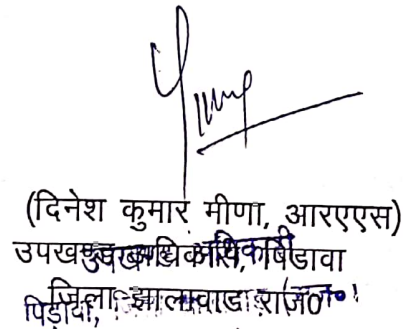 (दिनेश कुमार मीणा, आरएएस)
उपखण्ड अधिकारी, पिडावा
जिला-झालावाड राज०